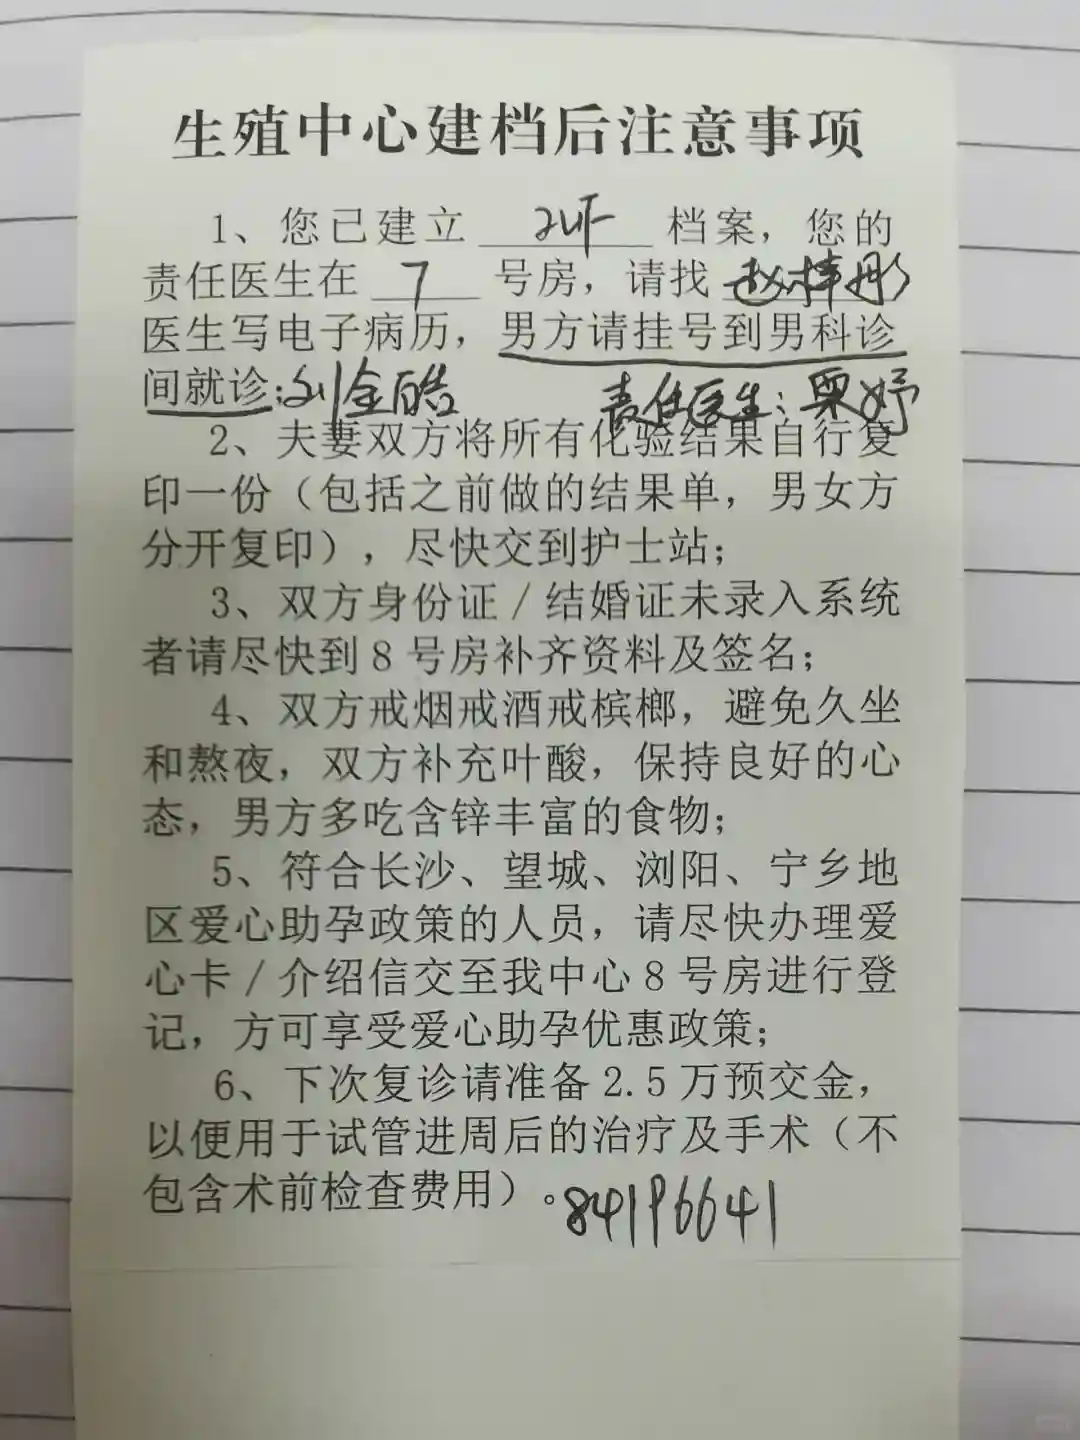 生殖中心建档后注意事项
1、您已建立 IVF 档案，您的
责任医生在 7 号房，请找 赵梓彤
医生写电子病历，男方请挂号到男科诊
间就诊；刘金皓 责任医生：粟妤
2、夫妻双方将所有化验结果自行复
印一份（包括之前做的结果单，男女方
分开复印），尽快交到护士站；
3、双方身份证/结婚证未录入系统
者请尽快到8号房补齐资料及签名；
4、双方戒烟戒酒戒槟榔，避免久坐
和熬夜，双方补充叶酸，保持良好的心
态，男方多吃含锌丰富的食物；
5、符合长沙、望城、浏阳、宁乡地
区爱心助孕政策的人员，请尽快办理爱
心卡/介绍信交至我中心8号房进行登
记，方可享受爱心助孕优惠政策；
6、下次复诊请准备2.5万预交金，
以便用于试管进周后的治疗及手术（不
包含术前检查费用）。84196641